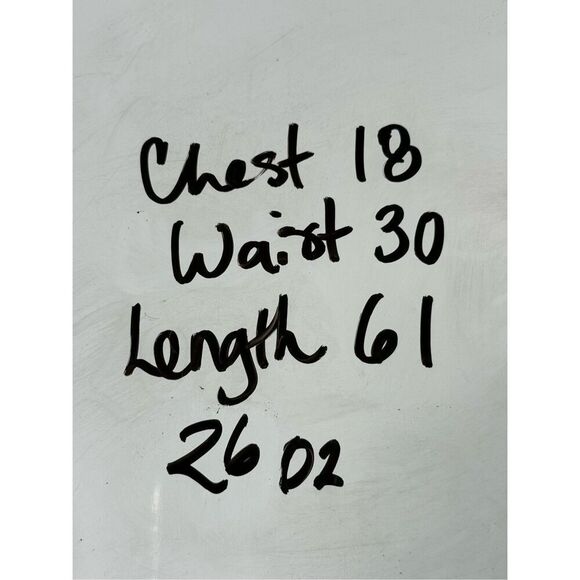 Chest 18
Waist 30
Length 61
26 oz